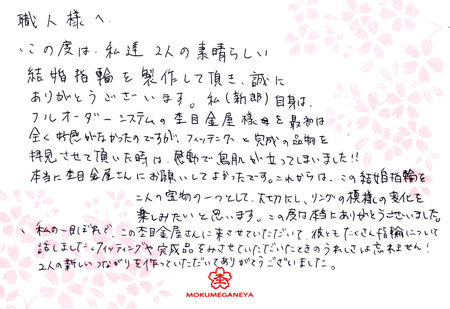 職人様へ
、この度は、私達2人の素晴らしい
結婚指輪を製作して頂き、誠に
ありがとうございます。私(新郎)自身は、
フルオーダーシステムの杢目金屋様を最初は
全く好感がなかったのですが、フィッティングと完成の品物を
拝見させて頂いた時は、感動で鳥肌が立ってしまいました!!
本当に杢目金屋さんにお願いしてよかったです。これからは、この結婚指輪を
二人の宝物の一つとして、大切にし、リングの模様の変化を
楽しみたいと思います。この度は本当にありがとうございました。
、私の一目ぼれで、この杢目金屋さんに来させていただいて、彼ともたくさん指輪について
話しました。フィッティングや完成品をみさせていただいたときのうれしさは忘れません!
2人の新しいつながりを作っていただいてありがとうございました。
杢
MOKUMEGANEYA